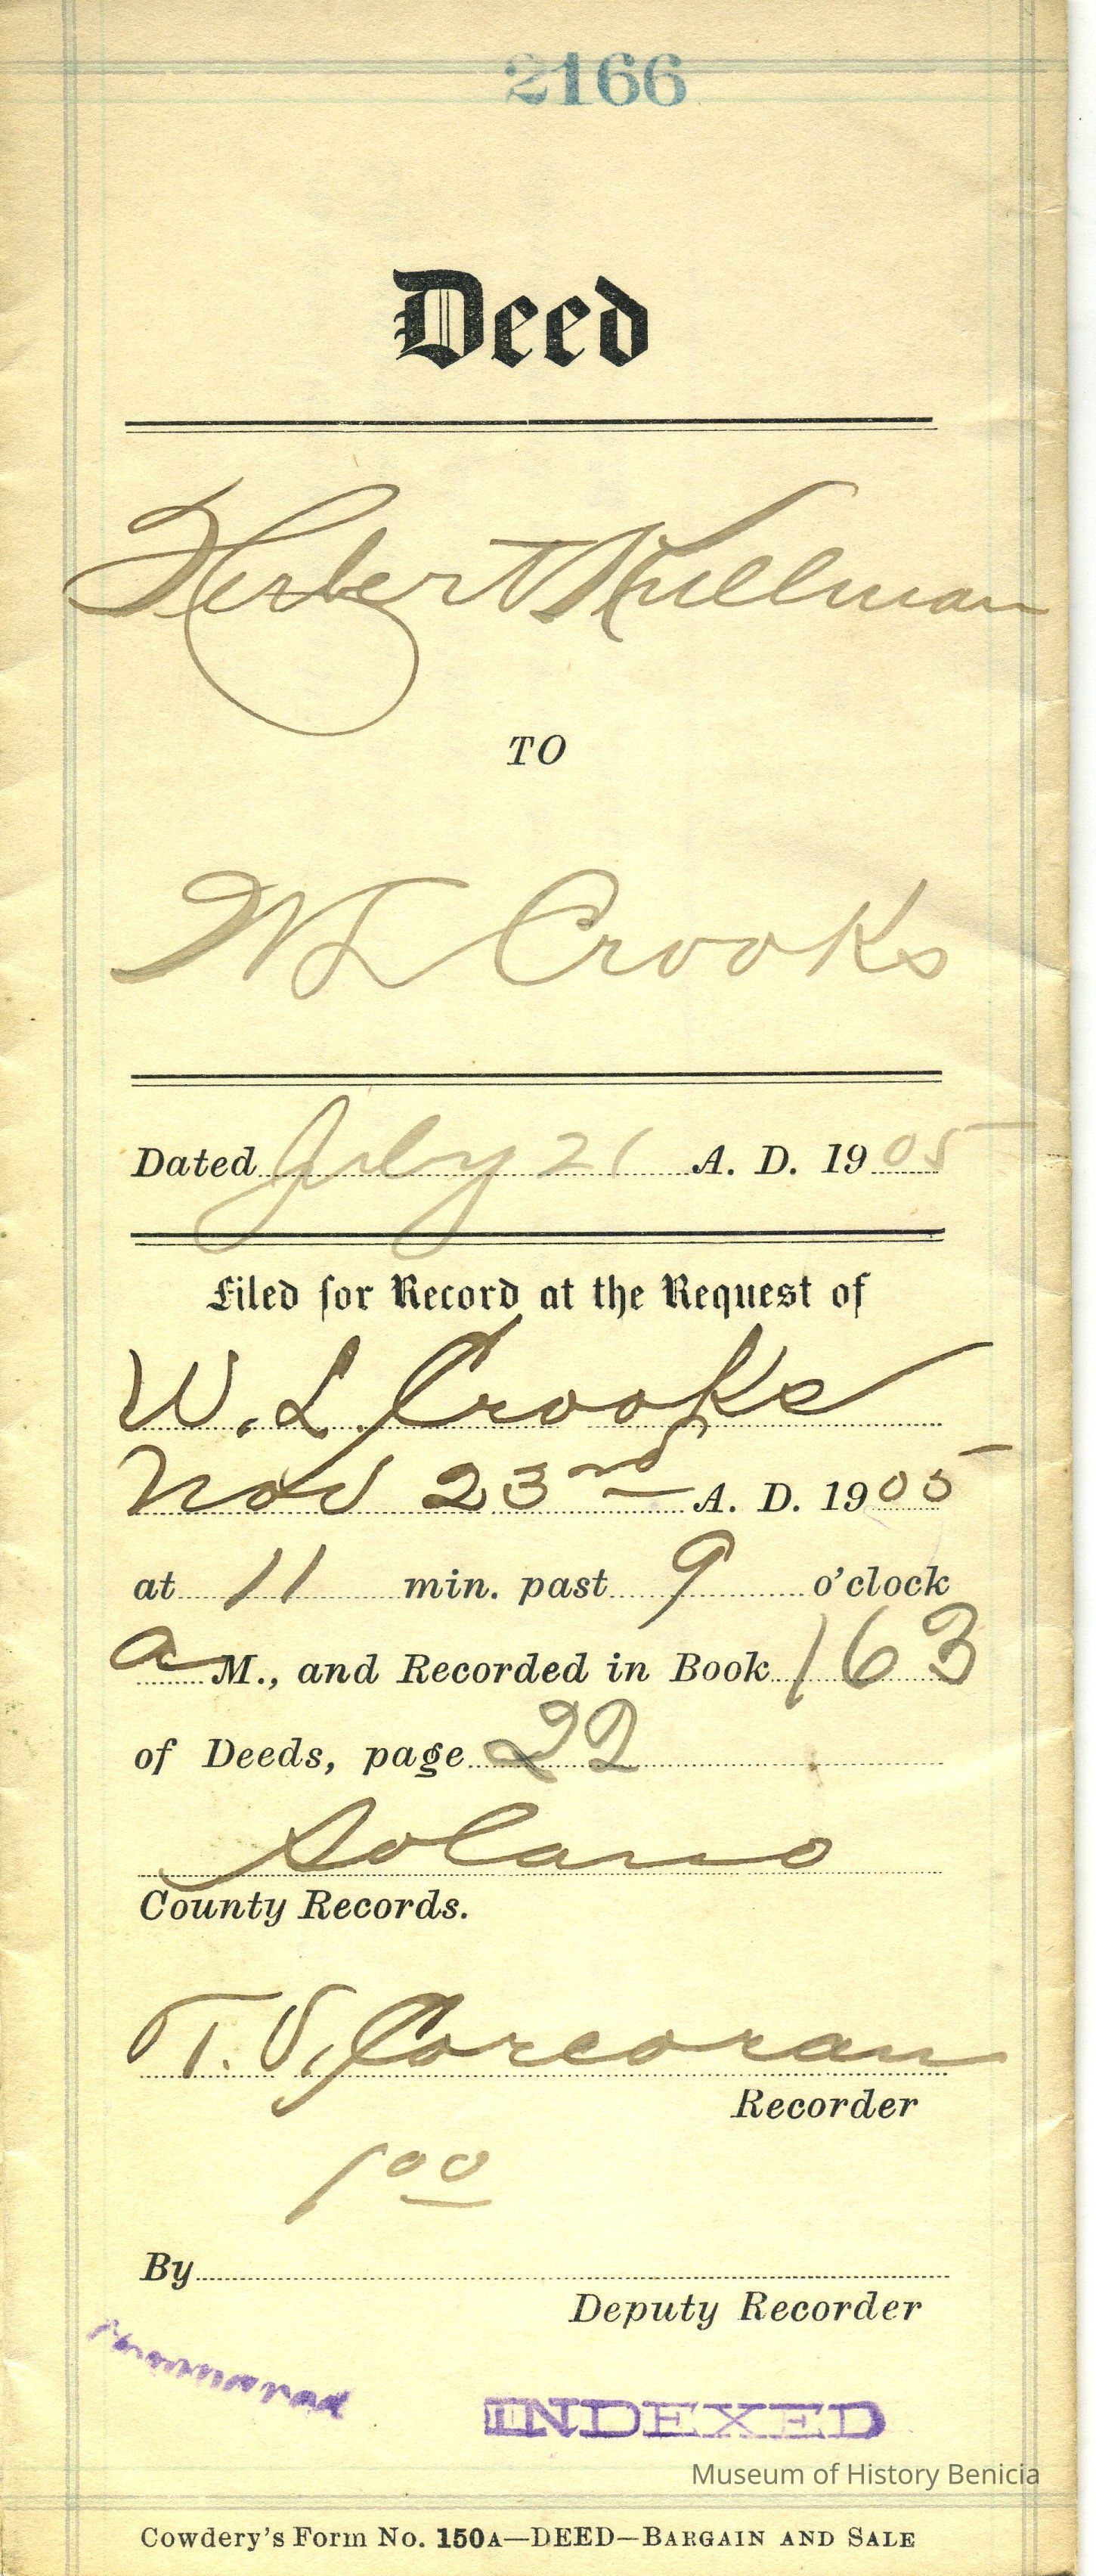 2166
Deed
Herbert Kullman
TO
W L Crooks
Dated July 21 A. D. 1905
Filed for Record at the Request of
W. L. Crooks
Nov 23rd A. D. 1905
at 11 min. past 9 o'clock
a M., and Recorded in Book 163
of Deeds, page 22
Solano
County Records.
T. V. Corcoran
Recorder
1 00
By
Deputy Recorder
INDEXED
Museum of History Benicia
Cowdery's Form No. 150A—DEED—BARGAIN AND SALE